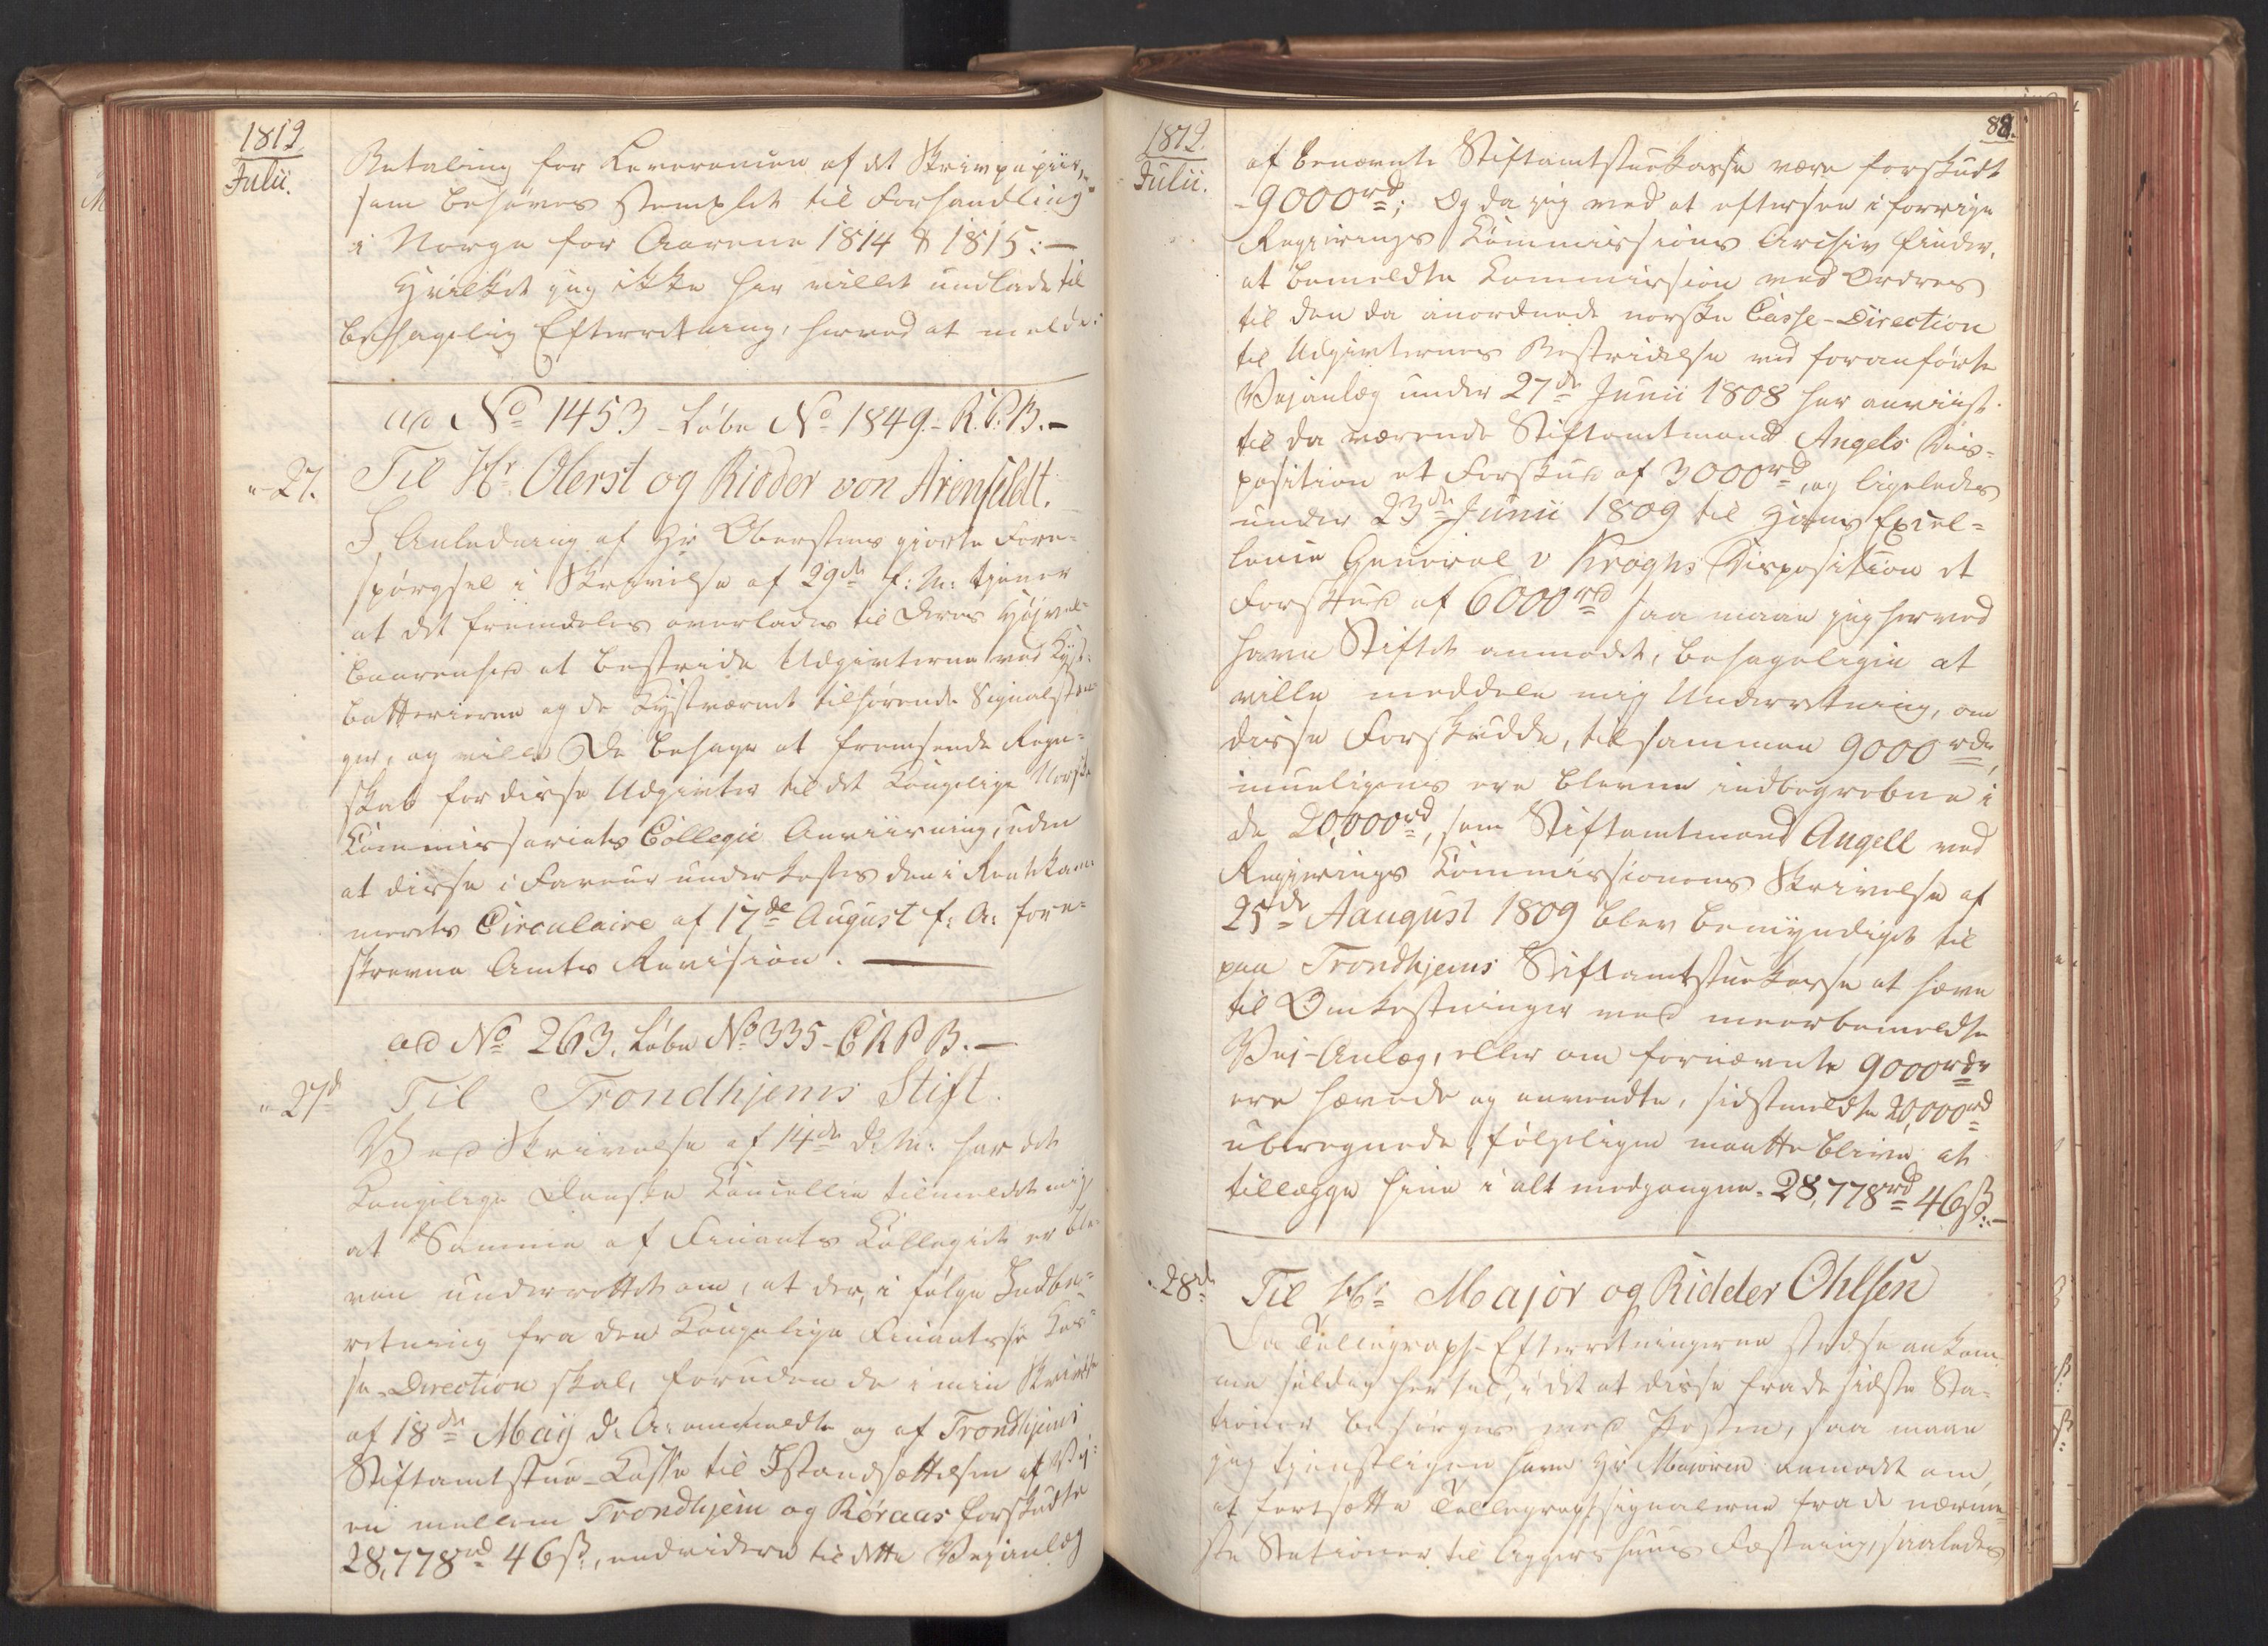 1812
Julii.
Betaling for Leverancen af det Skrivpapiir,
som behøves stemplet til Forhandling
i Norge for Aarene 1814 & 1815:—
Hvilket jeg ikke har villet undlade til
behagelig Efterretning, herved at melde.
ad No 1453 - Løbe No 1849.- R.P.B.—
" 27.
Til Hr. Oberst og Ridder von Arenfeldt.
I Anledning af Hr Oberstens giorte Fore-
spørgsel i Skrivelse af 29de f: M: tjener
at det fremdeles overlades til Deres Høyvel-
baarenhed at bestride Udgivterne ved Kyst-
batterierne og de Kystværnet tilhørende Signalstæn-
ger, og ville De behage at fremsende Regn-
skab for disse Udgivter til det Kongelige Norske
Commissariats Collegii Anviisning, uden
at disse i Faveur underkastes den i Rentekam-
merets Circulaire af 17de August f: A: fore-
skrevne Amts Revision. —
ad No 263. Løbe No 335 - C R P B.—
" 27d
Til Trondhjems Stift.
Ved Skrivelse af 14de d: M: har det
Kongelige Danske Cancellie tilmeldt mig
at Samme af Finants Collegiet er ble-
ven underrettet om, at der, i følge Indbe-
retning fra den Kongelige Finantsse Cas-
se-Direction skal, foruden de i min Skrivelse
af 18de Maij d: A: ommeldte og af Trondhjems
Stiftamtstue-Casse til Istandsættelsen af Vej-
en mellem Trondhjem og Røraas forskudte
28,778rd 46ß:, endvidere til dette Vejanlæg
1812.
Julii.
88.
af benævnte Stiftamtstuekasse være forskudt
-9000rd; Og da jeg ved at eftersee i forrige
Regjerings Commissions Archiv finder,
at bemeldte Commission ved Ordres
til den da anordnede norske Casse-Direction
til Udgivternes Bestridelse ved foranførte
Vejanlæg under 27de Junii 1808 har anviist
til da værende Stiftamtmand Angels Dis-
position et Forskud af 3000rd, og ligeledes
under 23de Junii 1809 til Hans Excel-
lence General v Kroghs Disposition et
Forskud af 6000rd saa maae jeg herved
have Stiftet anmodet, behageligen at
ville meddele mig Underretning, om
disse Forskudde, tilsammen 9000rdr,
mueligens ere blevne indbegrebne i
de 20,000rd, som Stiftamtmand Angell ved
Regjerings Commissionens Skrivelse af
25de Aaugust 1809 blev bemyndiget til
paa Trondhjems Stiftamtstuekasse at hæve
til Omkostninger ved meerbemeldte
Vej-Anlæg, eller om fornævnte 9000rdr
ere hævede og anvendte, sidstmeldte 20,000rd
uberegnede, følgeligen maatte blive at
tillægge hine i alt medgangne 28,778rd 46ß:—
" 28de
Til Hr Major og Ridder Ohlsen
Da Tellegraph-Efterretningerne stedse ankom-
me sildig hertil, i det at disse fra de sidste Sta-
tioner besørges med Posten, saa maae
jeg tjenstligen have Hr Majoren anmodet om
at fortsætte Tellegraphsignalerne fra de nærme-
ste Stationer til Aggershuus Fæstning, saaledes